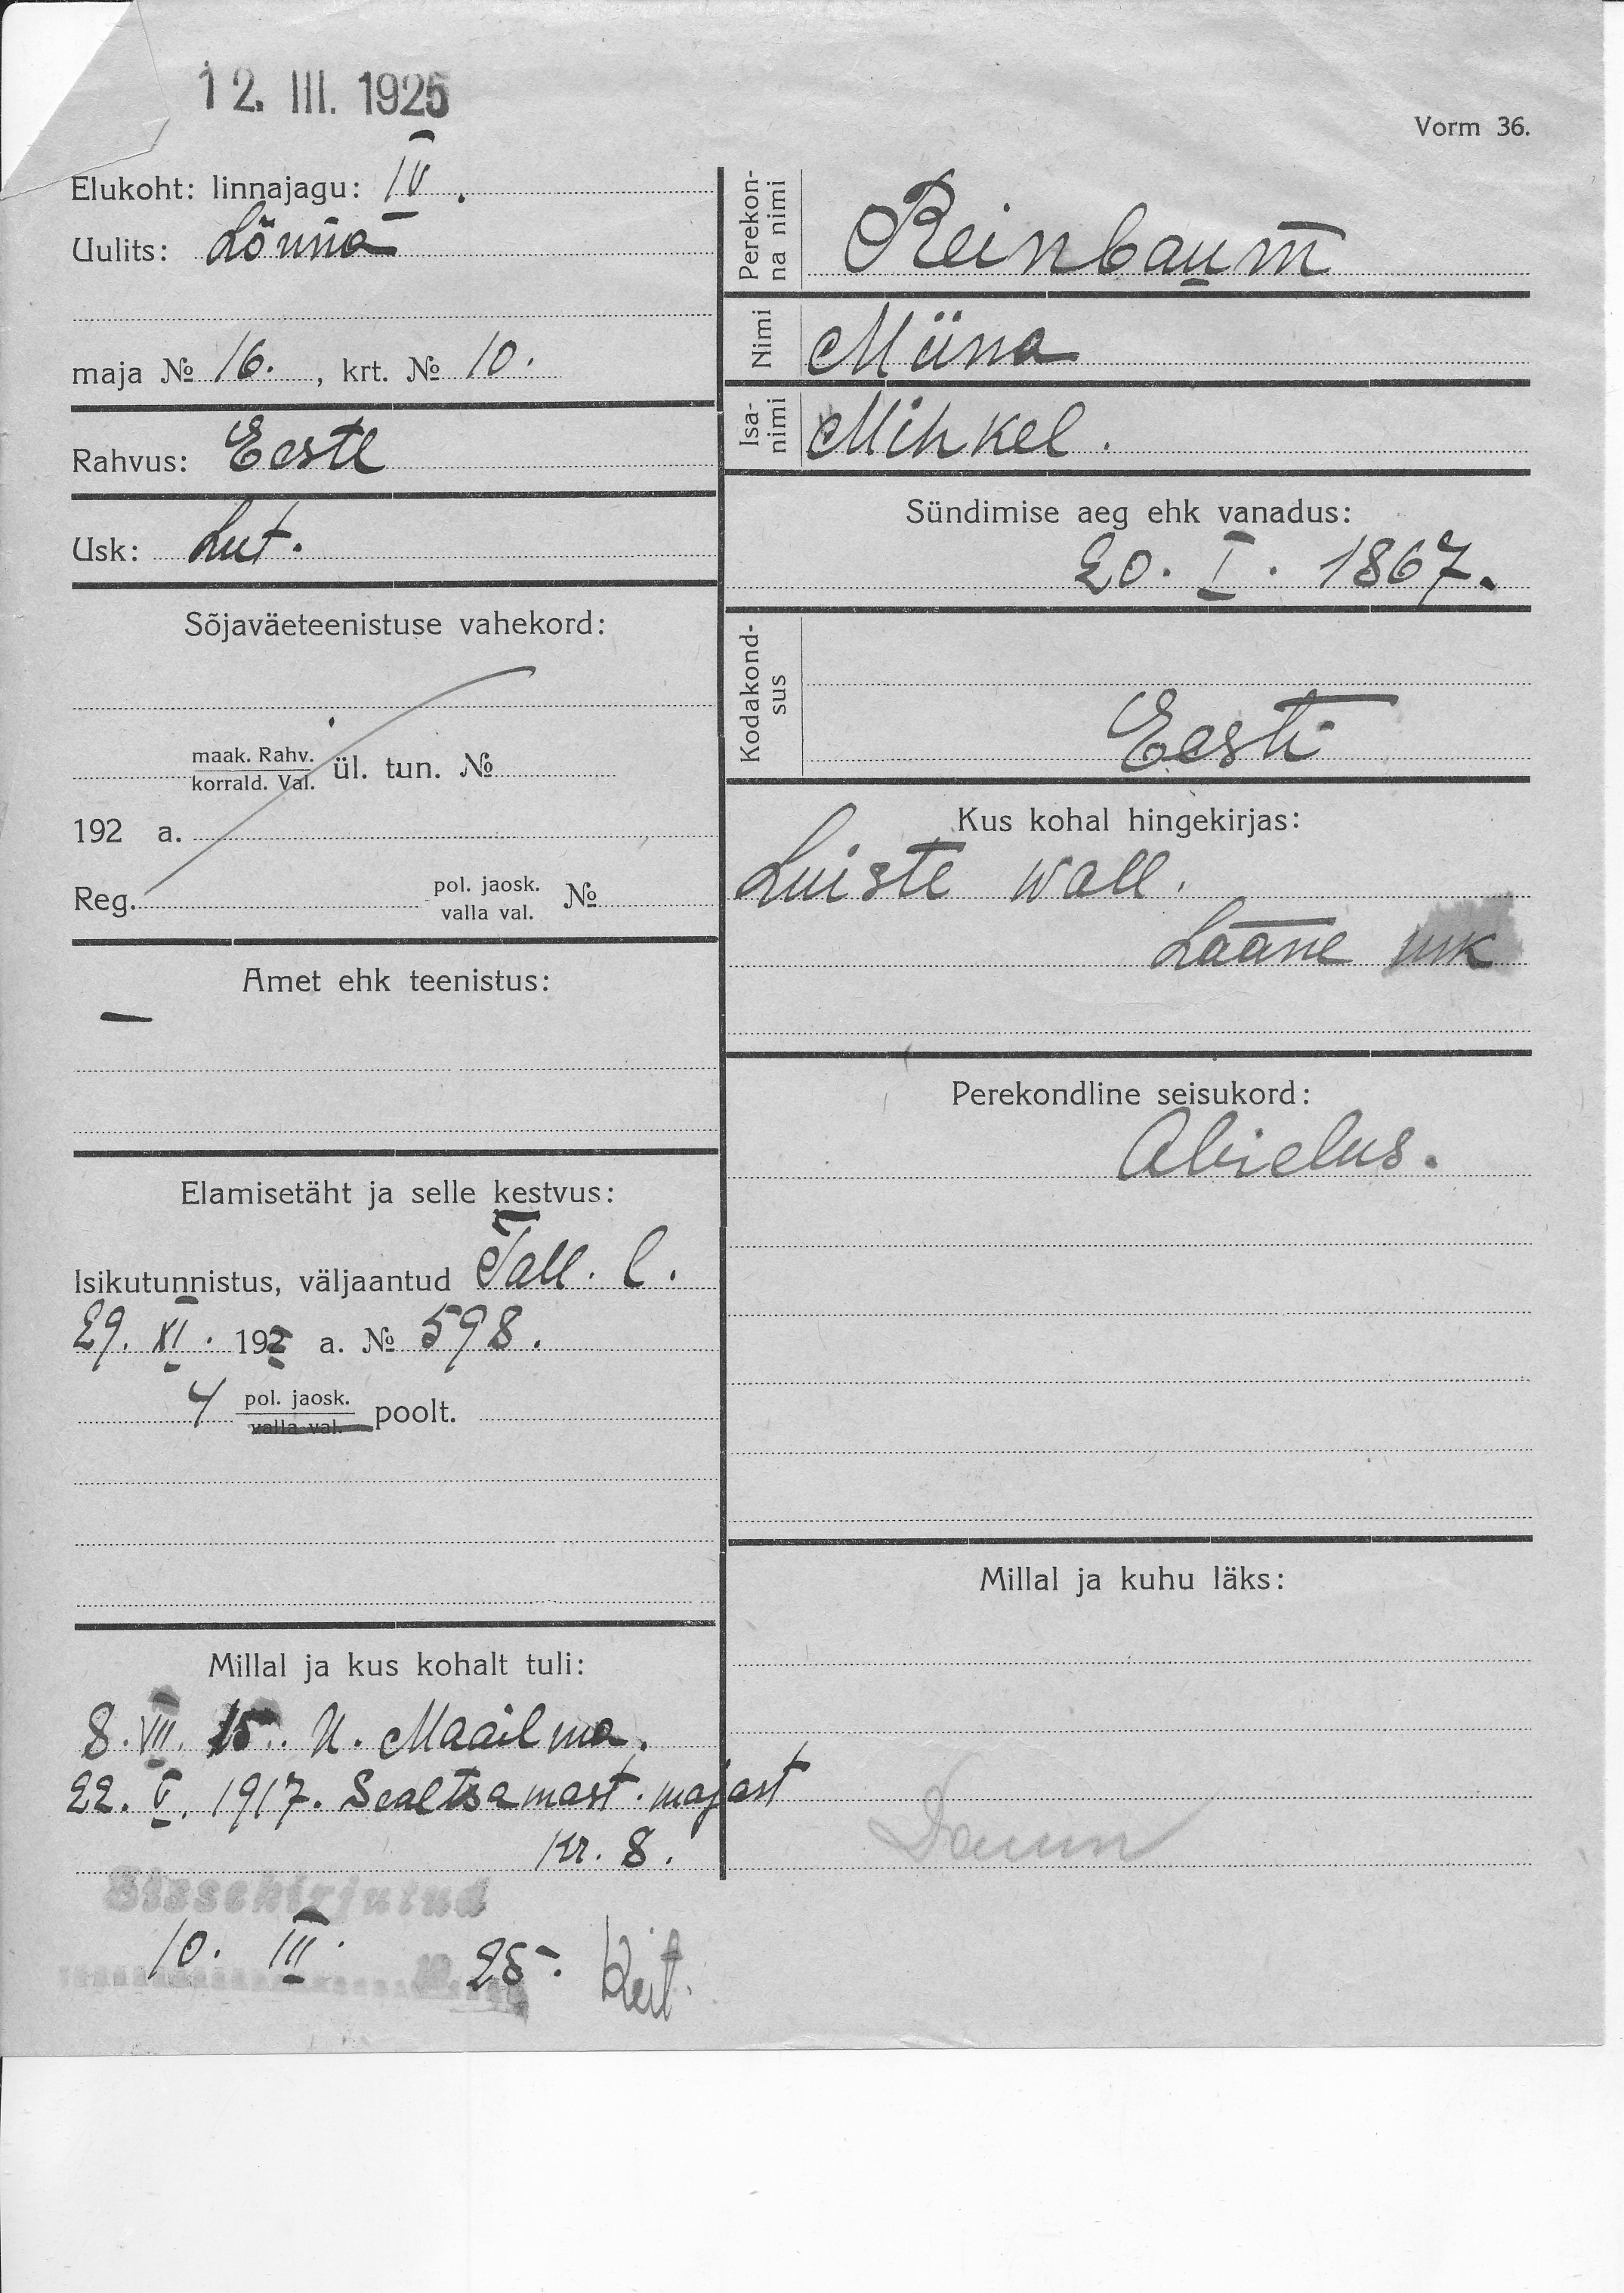 12. III. 1925
Vorm 36.
Elukoht: linnajagu: IV.
Uulits: Lõuna
maja № 16. , krt. № 10.
Rahvus: Eestl
Usk: Lut.
Sõjaväeteenistuse vahekord:
maak. Rahv.
korrald. Val. ül. tun. №
192 a.
Reg. pol. jaosk.
valla val. №
Amet ehk teenistus:
—
Elamisetäht ja selle kestvus:
Isikutunnistus, väljaantud Tall. l.
29. XI. 192 a. № 598.
4 pol. jaosk.
valla val. poolt.
Millal ja kus kohalt tuli:
8. VII. 15. U. Maailma.
22. V. 1917. Sealtsamast. majast
Nr. 8.
Sissekirjutud
10. III. 25.
Perekon-
na nimi Reinbaum
Nimi Miina
Isa-
nimi Mihkel.
Sündimise aeg ehk vanadus:
20. I. 1867.
Kodakond-
sus Eesti
Kus kohal hingekirjas:
Luiste wall.
Lääne mk
Perekondline seisukord:
Abielus.
Millal ja kuhu läks: